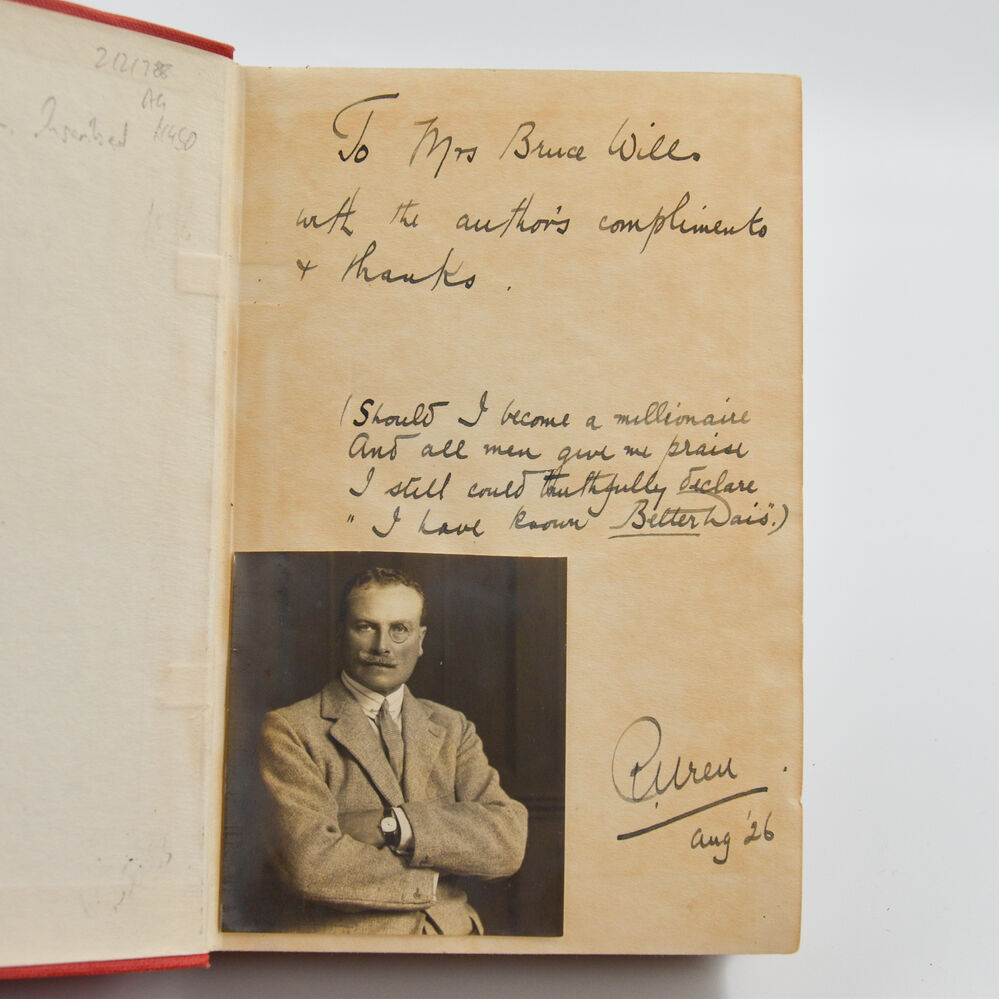 Inscribed
To Mrs Bruce Wills
with the author's compliments
& thanks.
(Should I become a millionaire
And all men give me praise
I still could truthfully declare
"I have known Better Dais".)
P. Wren.
Aug '26